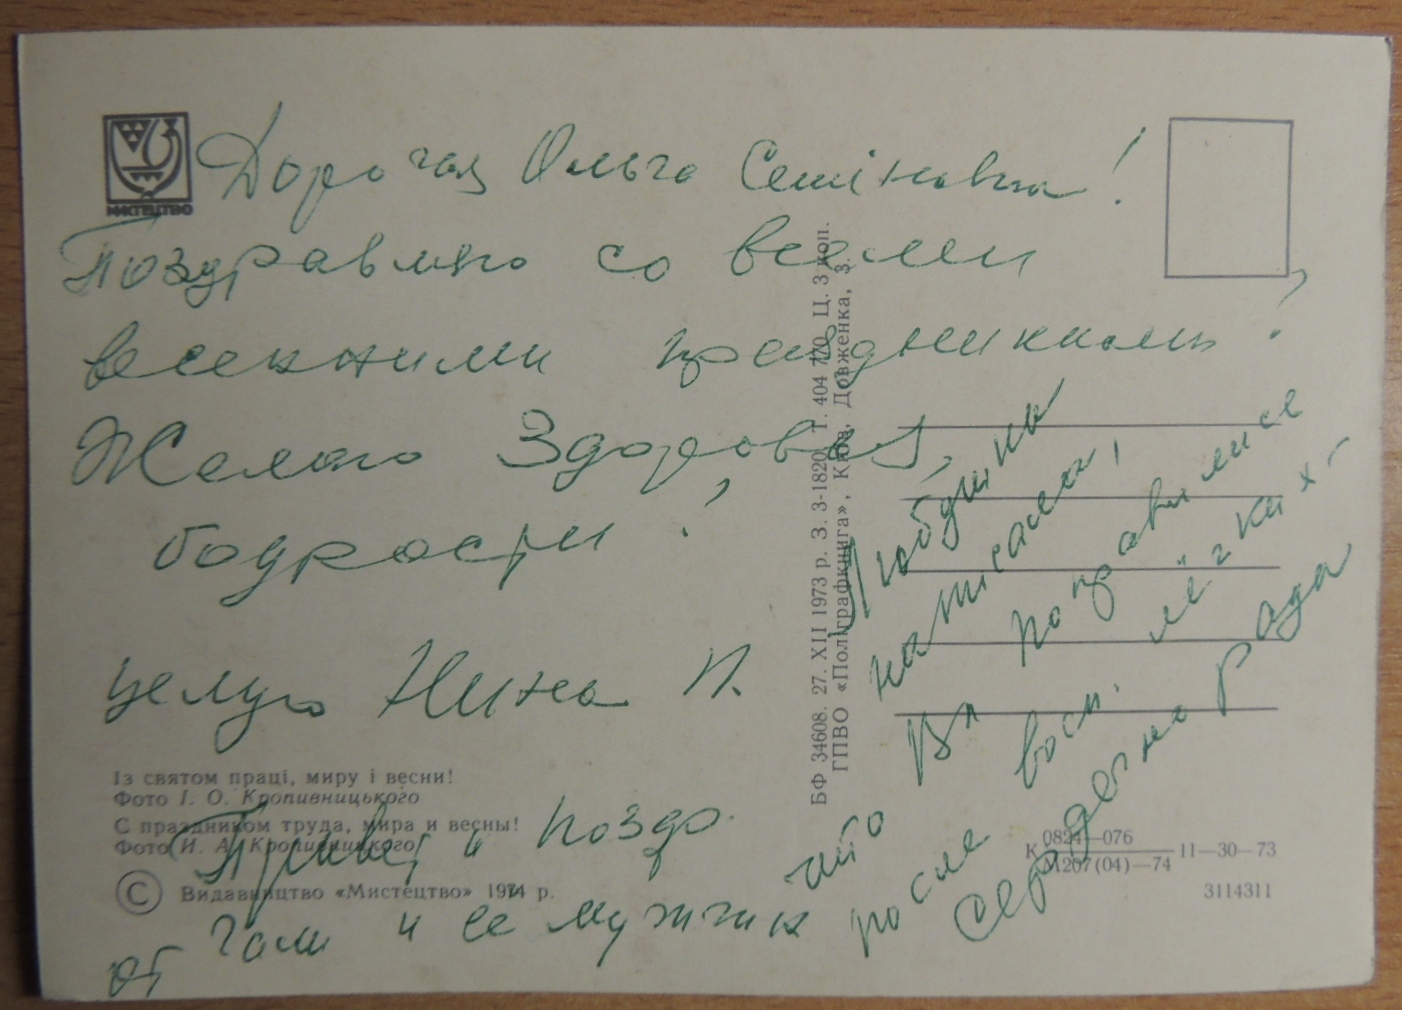 МИСТЕЦТВО
Дорогая Ольга Семіновна!
Поздравляю со всеми
весенними праздниками!
Желаю Здоровья,
бодрости!
целую Нина П.
Із святом праці, миру і весни!
Фото І. О. Кропивницького
С праздником труда, мира и весны!
Фото И. А. Кропивницкого
Привет и поздр.
© Видавництво «Мистецтво» 1974 р.
от Гали и ее мужика
БФ 34608. 27. XII 1973 р. З. 3-1820. Т. 404 770. Ц. 3 коп.
ГПВО «Поліграфкнига», Київ, Довженка, 3.
Любушка
написала,
что Вы поправились
после восп. лёгких-
сердечно рада
К 0824—076
М207(04)—74 11—30—73
3114311